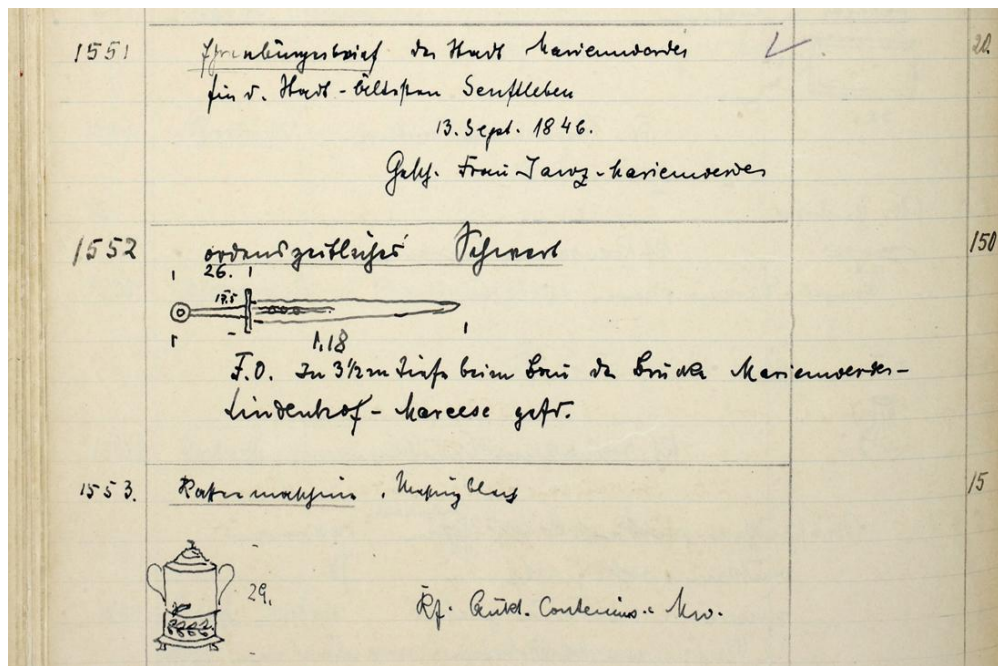 1551 Ehrenbürgerbrief der Stadt Marienwerder 20.
für d. Stadt-Ältesten Senftleben
13. Sept. 1846.
Gesch. Frau Marienwerder
1552 ordenszeitliches Schwert 150
26.
17.5
1,18
F.O. In 3½ m Tiefe beim Bau der Brücke Marienwerder-
Lindenhof - Mareese gefd.
1553. Kaffeemaschine, Messingblech 15
29.
Kf. Contenius - Mw.